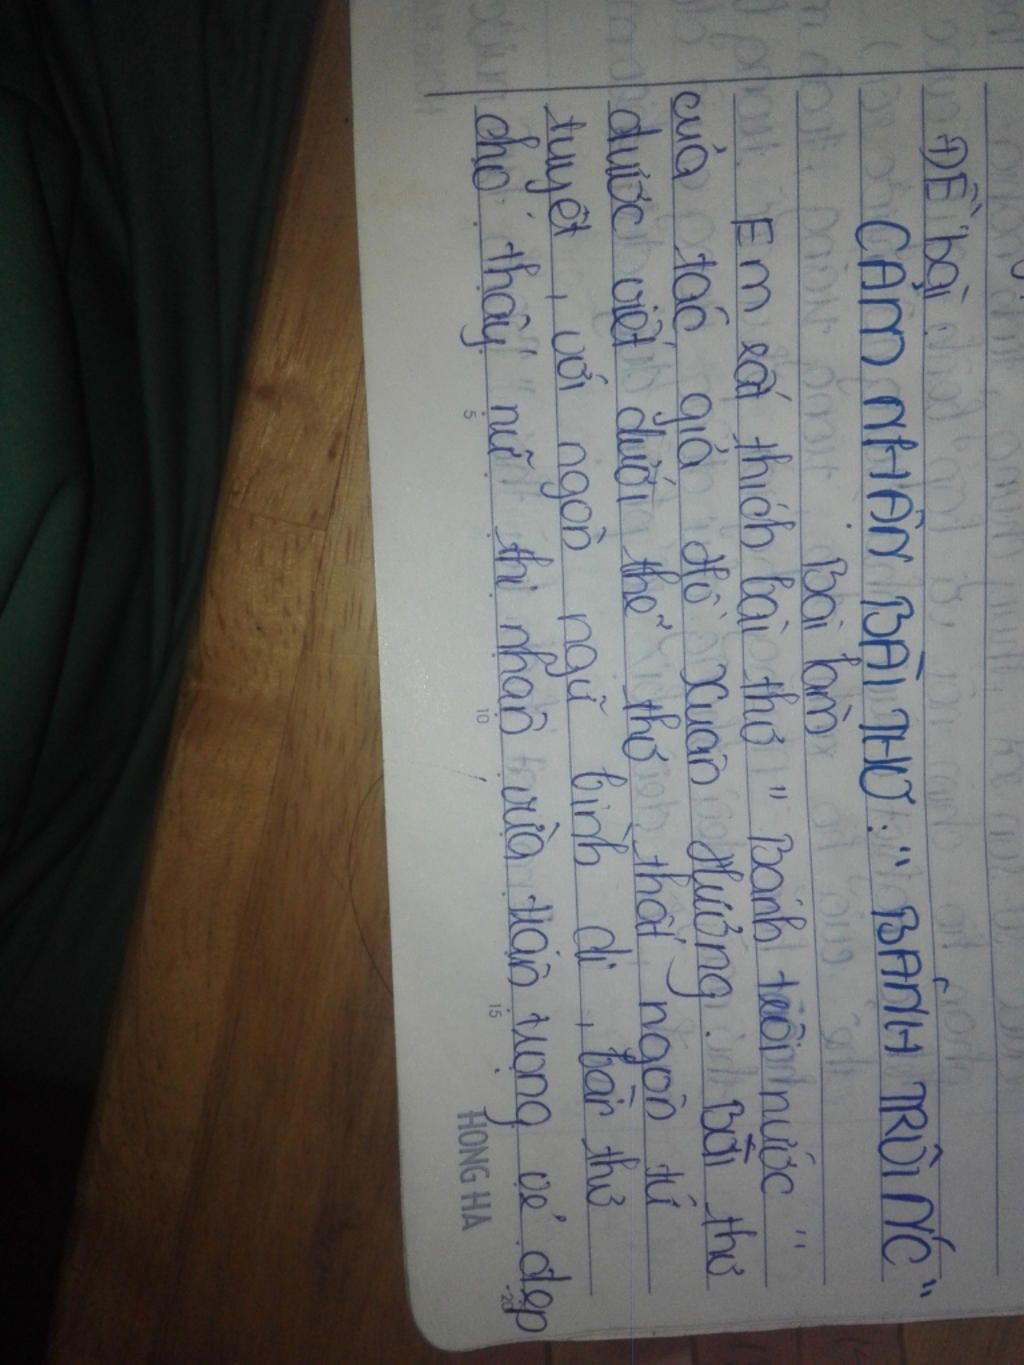 ĐỀ bài
CẢM NHẬN BÀI THƠ : " BÁNH TRÔI NÚC "
Bài làm
Em rất thích bài thơ " Bánh trôi nước "
của tác giả Hồ Xuân Hương. Bài thơ
được viết dưới thể thơ thất ngôn tứ
tuyệt, với ngôn ngữ bình dị, bài thơ
cho thấy nữ thi nhân vừa trân trọng vẻ đẹp
5
10
15
20
HONG HA